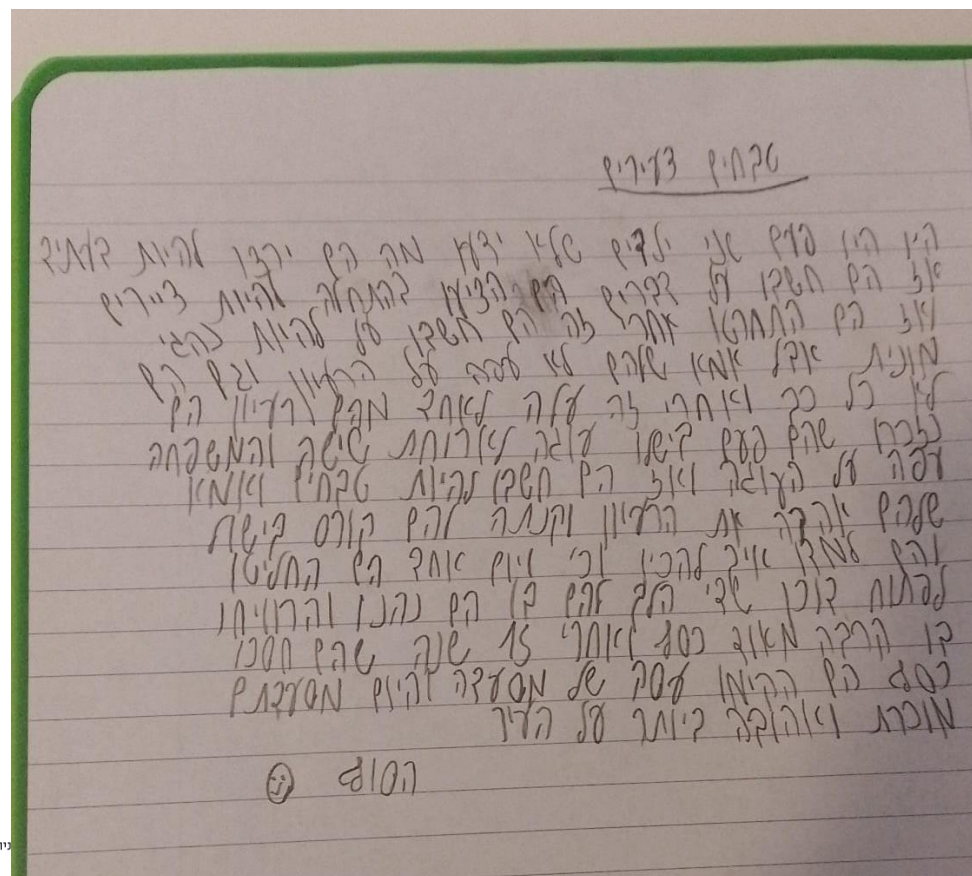 טבחים צעירים
היו היו פעם שני ילדים שלא ידעו מה הם ירצו להיות בעתיד
אז הם חשבו על דברים הם הציעו בהתחלה להיות ציירים
ואז הם התחרטו אחרי זה הם חשבו על להיות נהגי
מונית אבל אמא שלהם לא עפה על הרעיון וגם הם
לא כל כך ואחרי זה עלה לאחד מהם רעיון הם
נזכרו שהם פעם בישלו עוגה לארוחת שישה והמשפחה
עפה על העוגה ואז הם חשבו להיות טבחים ואמא
שלהם אהבה את הרעיון וקנתה להם קורס בישול
והם למדו איך להכין וכו' ויום אחד הם החליטו
לפתוח דוכן שדי הלך להם בו הם נהנו והרוויחו
בו הרבה מאוד כסף ואחרי 15 שנה שהם חסכו
כסף הם הקימו עסק של מסעדה והיום מסעדתם
מוכרת ואהובה ביותר על העיר
הסוף